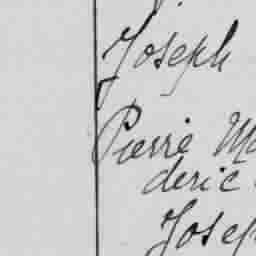 Joseph
Pierre
deric
Joseph